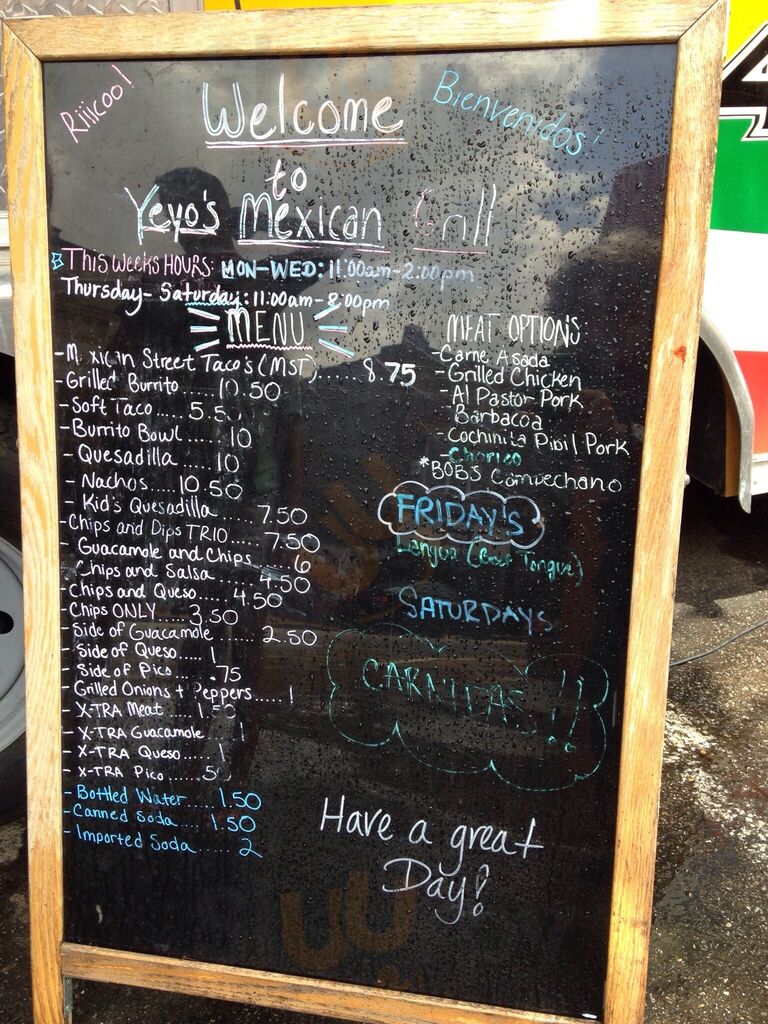 Riiicoo!
Welcome
Bienvenidos!
to
Yeyo's Mexican Grill
This Weeks HOURS: MON-WED: 11:00am-2:00pm
Thursday-Saturday: 11:00am-8:00pm
MENU
- Mexican Street Taco's (MST)...... 8.75
- Grilled Burrito ..... 10.50
- Soft Taco..... 5.50
- Burrito Bowl..... 10
- Quesadilla ..... 10
- Nachos.... 10.50
- Kid's Quesadilla ..... 7.50
- Chips and Dips TRIO..... 7.50
- Guacamole and Chips..... 6
Chips and Salsa ..... 4.50
- Chips and Queso.... 4.50
- Chips ONLY.... 3.50
- Side of Guacamole ..... 2.50
- Side of Queso..... 1
- Side of Pico.... .75
- Grilled Onions + Peppers..... 1
- X-TRA Meat .... 1.50
- X-TRA Guacamole 1
- X-TRA Queso..... 1
- X-TRA Pico..... .50
- Bottled Water.... 1.50
- Canned Soda.... 1.50
- Imported Soda ..... 2
MEAT OPTIONS
- Carne Asada
- Grilled Chicken
- Al Pastor Pork
Barbacoa
- Cochinita Pibil Pork
- Chorizo
*BOBS Campechano
FRIDAY'S
Lengua (Beef Tongue)
SATURDAYS
CARNITAS!!
Have a great
Day!